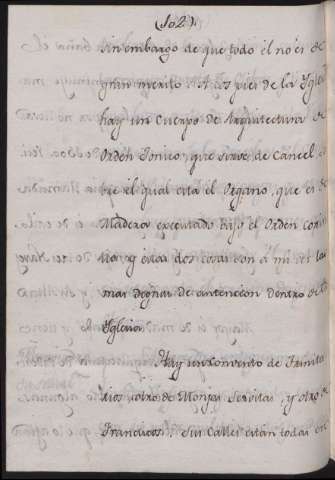 (102).
sin embargo de que todo él no es de
gran merito. A los pies de la Ygle
hay un Cuerpo de Arquitectura de
Orden Jonico, que sirve de Cancel, so
bre el qual está el Organo, que es de
Madera executado bajo el Orden corin
tio, y estas dos cosas son á mi ver las
mas dignas de antencion dentro de
Yglesia.
Hay un convento de Trinita
rios, otro de Monjas Servitas, y otro
Franciscos. Sus Calles estan todas en